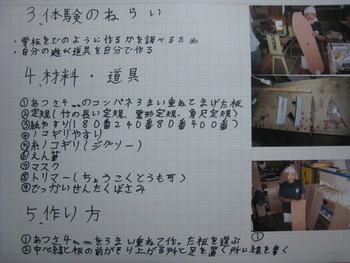 3.体験のねらい
・雪板をどのように作るかを調べるため
・自分の遊び道具を自分で作る
4.材料・道具
①あつさ4mmのコンパネ3まい重ねてまげた板
②定規(竹の長い定規、雲形定規、角尺定規)
③紙やすり(180番240番80番400番)
④ノコギリやすり
⑤糸ノコギリ(ジグソー)
⑥えん筆
⑦マスク
⑧トリマー(ちょうこくとうも可)
⑨でっかいせんたくばさみ
5.作り方
①あつさ4mmを3まい重ねて作った板を選ぶ
②中心線と板の前がそり上がる所と足を置く所に線を書く
①